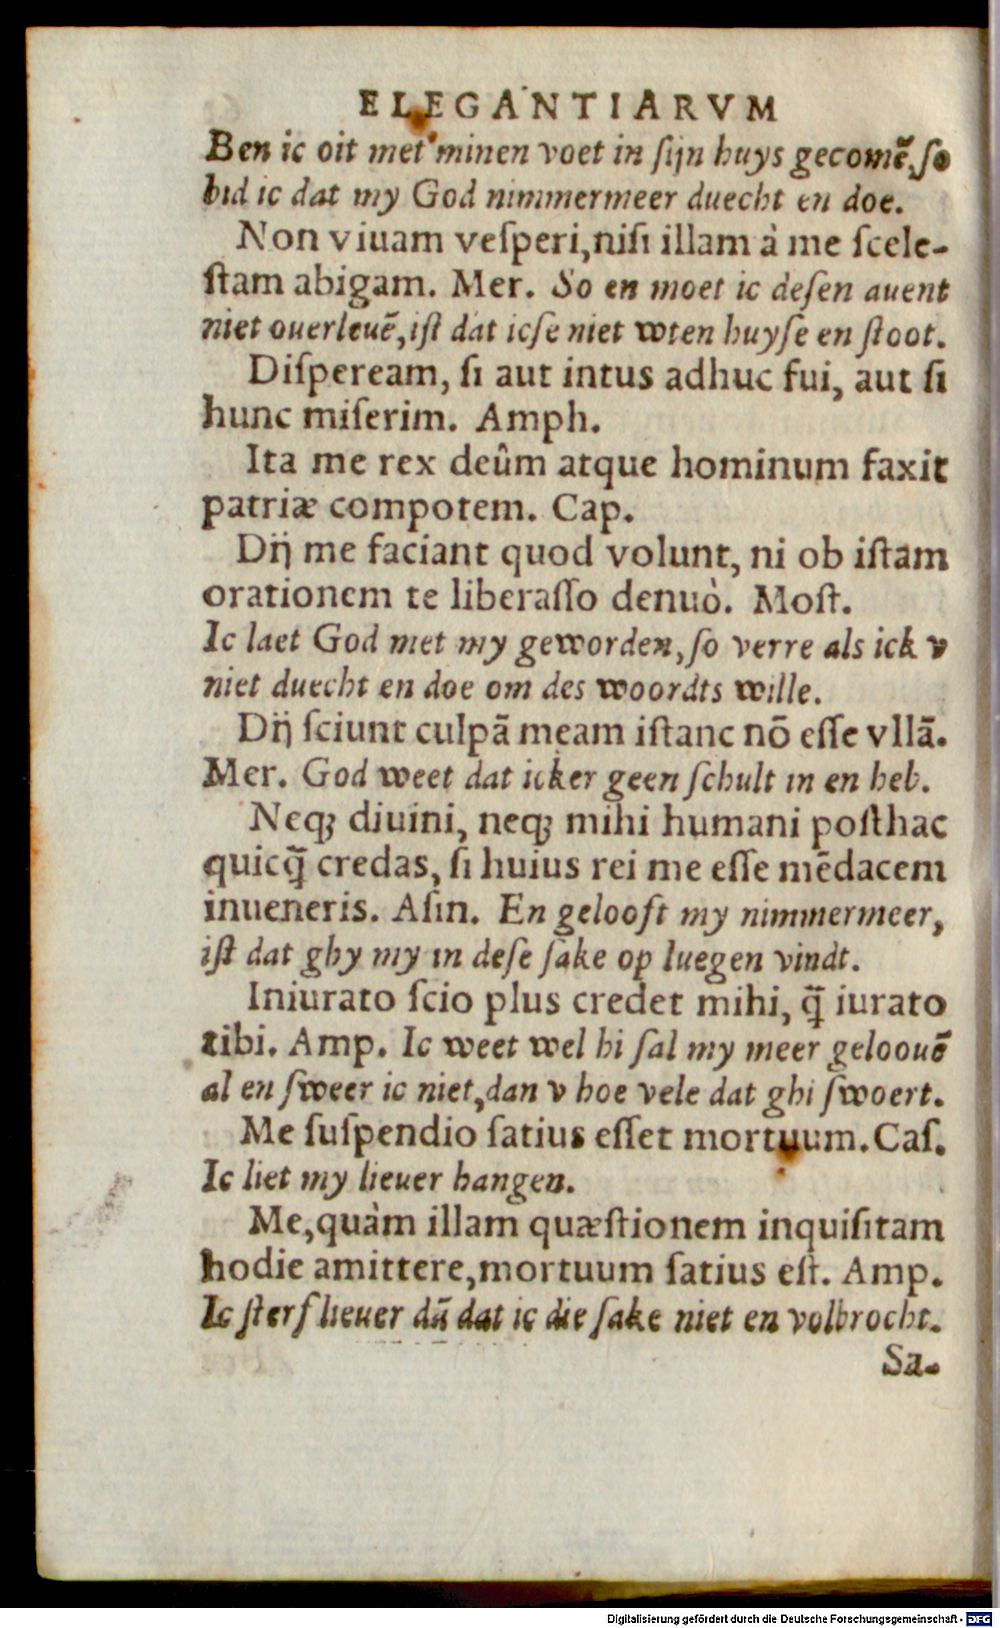 ELEGANTIARVM
Ben ic oit met minen voet in ſijn huys gecomē, ſo
bid ic dat my God nimmermeer duecht en doe.
Non viuam veſperi, niſi illam à me ſcele-
ſtam abigam. Mer. So en moet ic deſen auent
niet ouerleuē, iſt dat icſe niet wten huyſe en ſtoot.
Diſpeream, ſi aut intus adhuc fui, aut ſi
hunc miſerim. Amph.
Ita me rex deûm atque hominum faxit
patriæ compotem. Cap.
Dij me faciant quod volunt, ni ob iſtam
orationem te liberaſſo denuò. Moſt.
Ic laet God met my geworden, ſo verre als ick v
niet duecht en doe om des woordts wille.
Dij ſciunt culpā meam iſtanc nō eſſe vllā.
Mer. God weet dat icker geen ſchult in en heb.
Neq; diuini, neq; mihi humani poſthac
quicq̃ credas, ſi huius rei me eſſe mēdacem
inueneris. Aſin. En gelooft my nimmermeer,
iſt dat ghy my in deſe ſake op luegen vindt.
Iniurato ſcio plus credet mihi, q̃ iurato
tibi. Amp. Ic weet wel hi ſal my meer geloouē
al en ſweer ic niet, dan v hoe vele dat ghi ſwoert.
Me ſuſpendio ſatius eſſet mortuum. Caſ.
Ic liet my lieuer hangen.
Me, quàm illam quæſtionem inquiſitam
hodie amittere, mortuum ſatius eſt. Amp.
Ic ſterf lieuer dā dat ic die ſake niet en volbrocht.
Sa-
Digitalisierung gefördert durch die Deutsche Forschungsgemeinschaft - DFG